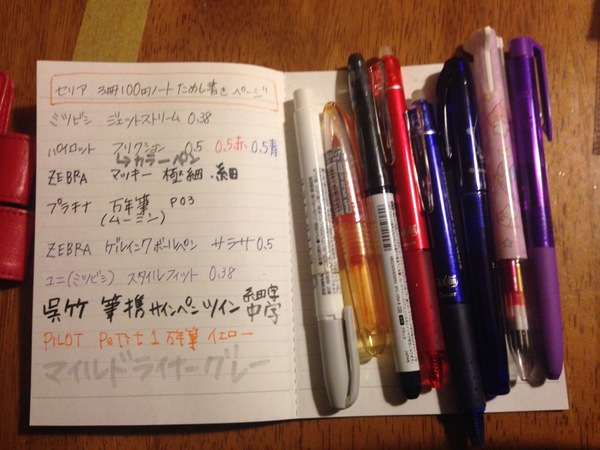 セリア 3冊100円ノート ためし書きページ
ミツビシ ジェットストリーム 0.38
パイロット フリクション 0.5 0.5赤 0.5青
↳カラーペン
ZEBRA マッキー 極細・細
プラチナ 万年筆 P03
(ムーミン)
ZEBRA ゲルインクボールペン サラサ 0.5
ユニ(ミツビシ) スタイルフィット 0.38
呉竹 筆携 サインペン ツイン 細字
中字
PILOT Petit1 万年筆 イエロー
マイルドライナーグレー